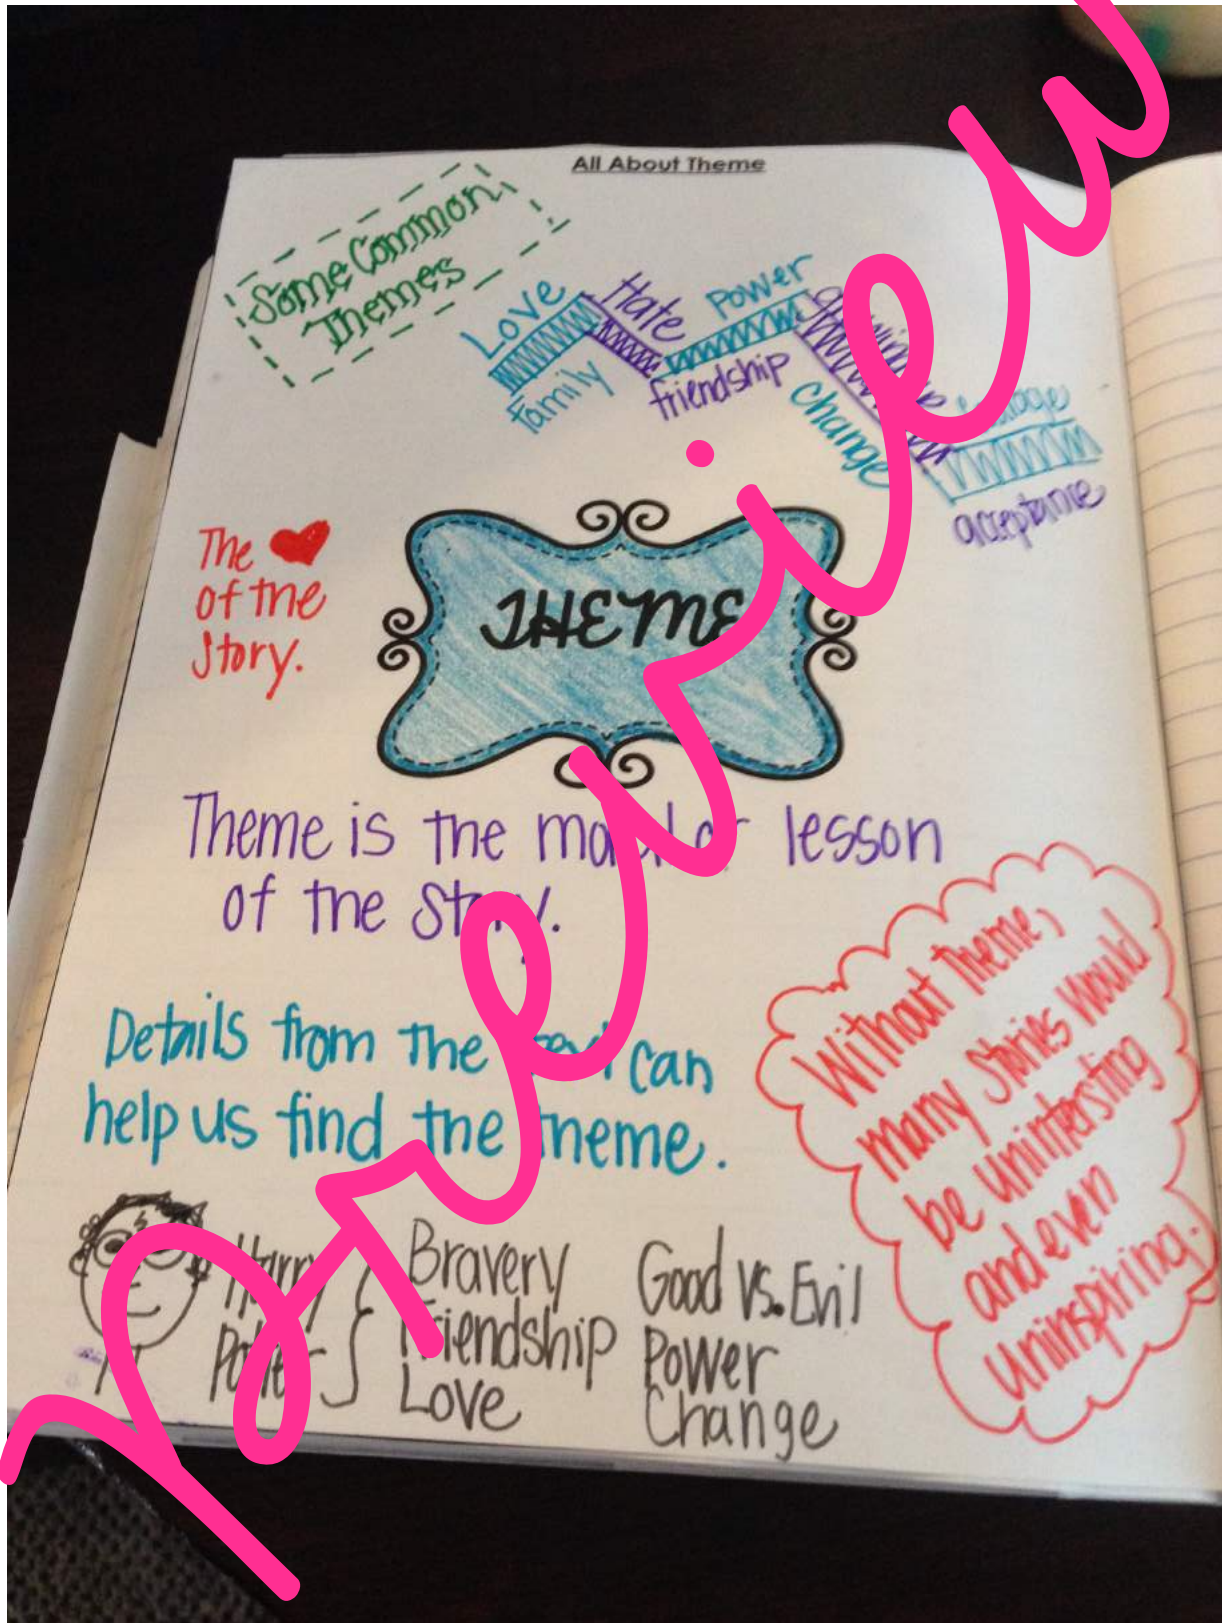 All About Theme
Some Common
Themes
Love
Hate
Power
family
friendship
change
acceptance
The ❤
of the
Story.
THEME
Theme is the moral or lesson
of the Story.
Details from the text can
help us find the theme.
Without theme,
many stories would
be unintersting
and even
uninspiring.
Harry
Potter
Bravery
Friendship
Love
Good vs. Evil
Power
Change
preview